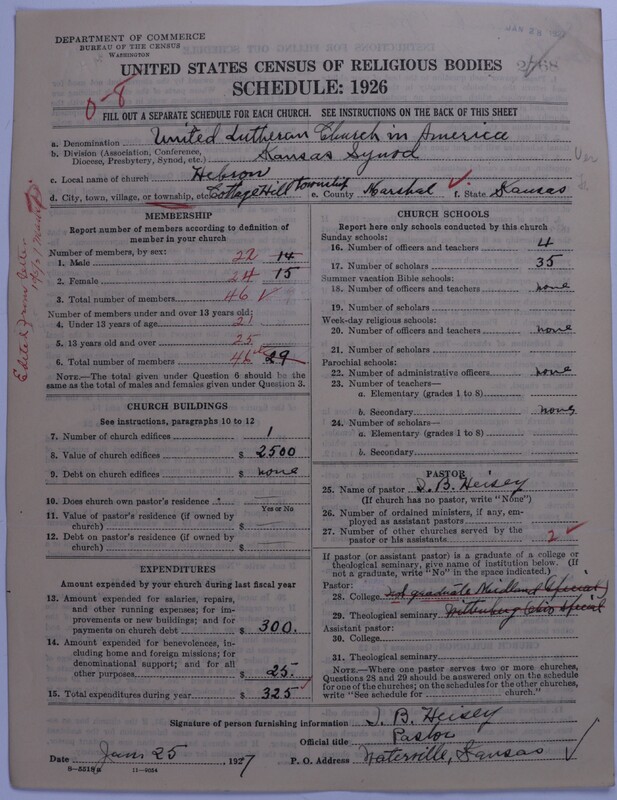 DEPARTMENT OF COMMERCE
BUREAU OF THE CENSUS
WASHINGTON
UNITED STATES CENSUS OF RELIGIOUS BODIES
SCHEDULE: 1926
0-8
FILL OUT A SEPARATE SCHEDULE FOR EACH CHURCH. SEE INSTRUCTIONS ON THE BACK OF THIS SHEET
a. Denomination United Lutheran Church in America
b. Division (Association, Conference, Diocese, Presbytery, Synod, etc.) Kansas Synod
c. Local name of church Hebron
d. City, town, village, or township, etc. Cottage Hill township e. County Marshal f. State Kansas
MEMBERSHIP
Report number of members according to definition of
member in your church
Number of members, by sex:
1. Male 22 14
2. Female 24 15
3. Total number of members 46
Number of members under and over 13 years old:
4. Under 13 years of age 21
5. 13 years old and over 25
6. Total number of members 46 29
NOTE.—The total given under Question 6 should be the
same as the total of males and females given under Question 3.
CHURCH BUILDINGS
See instructions, paragraphs 10 to 12
7. Number of church edifices 1
8. Value of church edifices $ 2500
9. Debt on church edifices $ none
10. Does church own pastor's residence
Yes or No
11. Value of pastor's residence (if owned by
church) $
12. Debt on pastor's residence (if owned by
church) $
EXPENDITURES
Amount expended by your church during last fiscal year
13. Amount expended for salaries, repairs,
and other running expenses; for im-
provements or new buildings; and for
payments on church debt $ 300.
14. Amount expended for benevolences, in-
cluding home and foreign missions; for
denominational support; and for all
other purposes $ 25.
15. Total expenditures during year $ 325
CHURCH SCHOOLS
Report here only schools conducted by this church
Sunday schools:
16. Number of officers and teachers 4
17. Number of scholars 35
Summer vacation Bible schools:
18. Number of officers and teachers none
19. Number of scholars
Week-day religious schools:
20. Number of officers and teachers none
21. Number of scholars
Parochial schools:
22. Number of administrative officers none
23. Number of teachers—
a. Elementary (grades 1 to 8)
b. Secondary none
24. Number of scholars—
a. Elementary (grades 1 to 8)
b. Secondary
PASTOR
25. Name of pastor J. B. Heisey
(If church has no pastor, write "None")
26. Number of ordained ministers, if any, em-
ployed as assistant pastors
27. Number of other churches served by the
pastor or his assistants 2
If pastor (or assistant pastor) is a graduate of a college or
theological seminary, give name of institution below. (If
not a graduate, write "No" in the space indicated.)
Pastor:
28. College Not graduate Midland Special
29. Theological seminary Wittenburg Ohio Special
Assistant pastor:
30. College
31. Theological seminary
NOTE.—Where one pastor serves two or more churches,
Questions 28 and 29 should be answered only on the schedule
for one of the churches; on the schedules for the other churches,
write "See schedule for church."
Signature of person furnishing information J. B. Heisey
Official title Pastor
Date Jan 25, 1927 P. O. Address Waterville, Kansas
11-9684